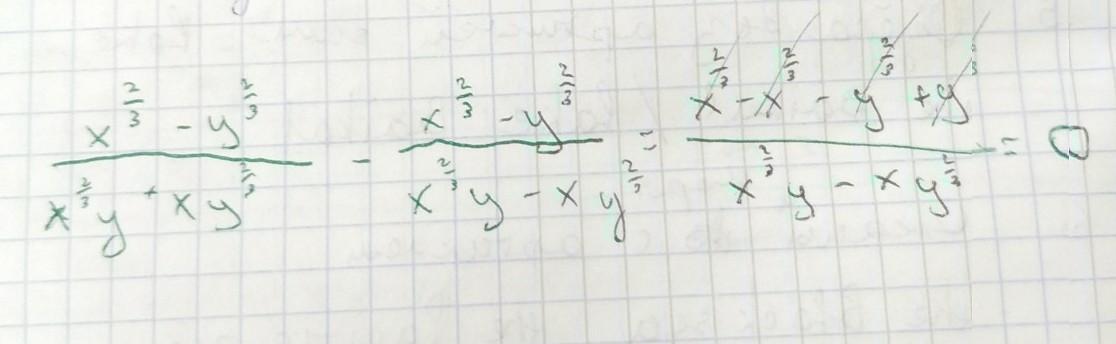 (x^{2/3} - y^{2/3}) / (x^{2/3} y + x y^{2/3}) - (x^{2/3} - y^{2/3}) / (x^{2/3} y - x y^{2/3}) = (x^{2/3} - x^{2/3} - y^{2/3} + y^{2/3}) / (x^{2/3} y - x y^{2/3}) = 0